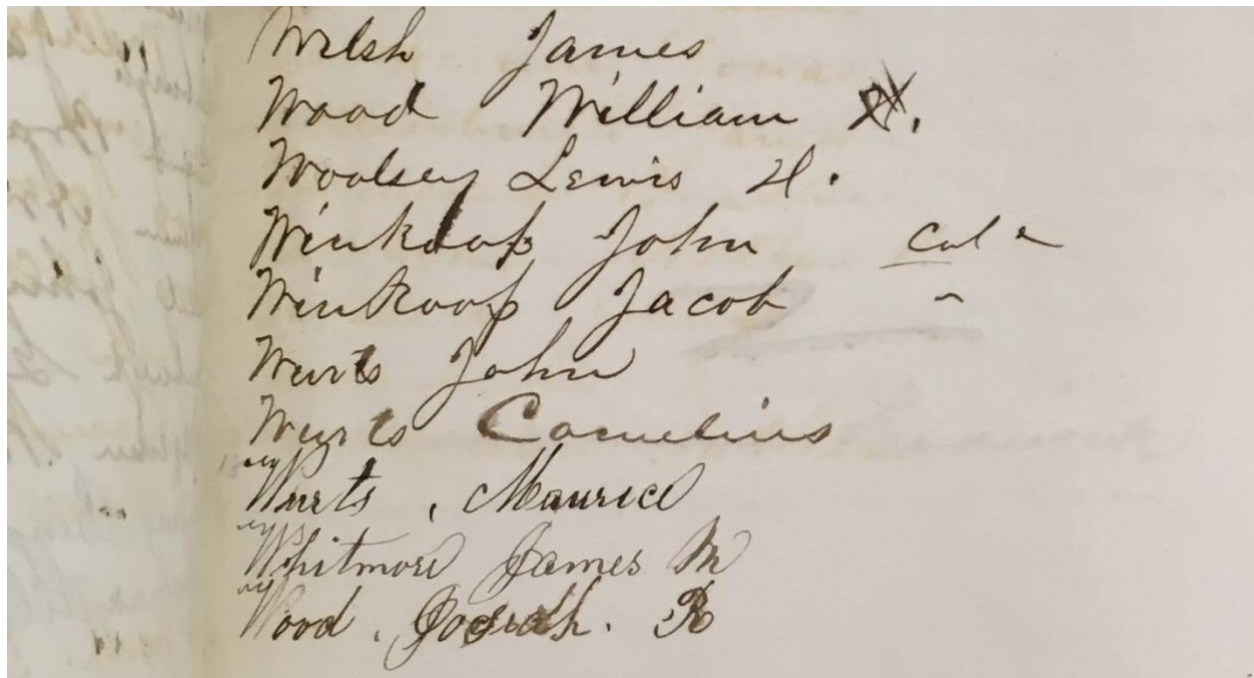 Welsh James
Wood William H.
Woolsey Lewis H.
Winkoop John Col
Winkoop Jacob "
Wurts John
Wurts Cornelius
Wurts, Maurice
Whitmore James M
Wood, Josiah. R